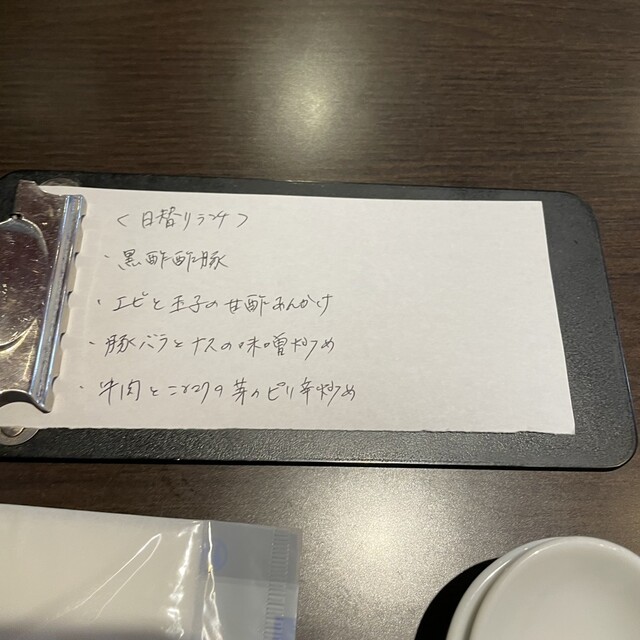 <日替りランチ>
・黒酢酢豚
・エビと玉子の甘酢あんかけ
・豚バラとナスの味噌炒め
・牛肉とニンニクの芽のピリ辛炒め